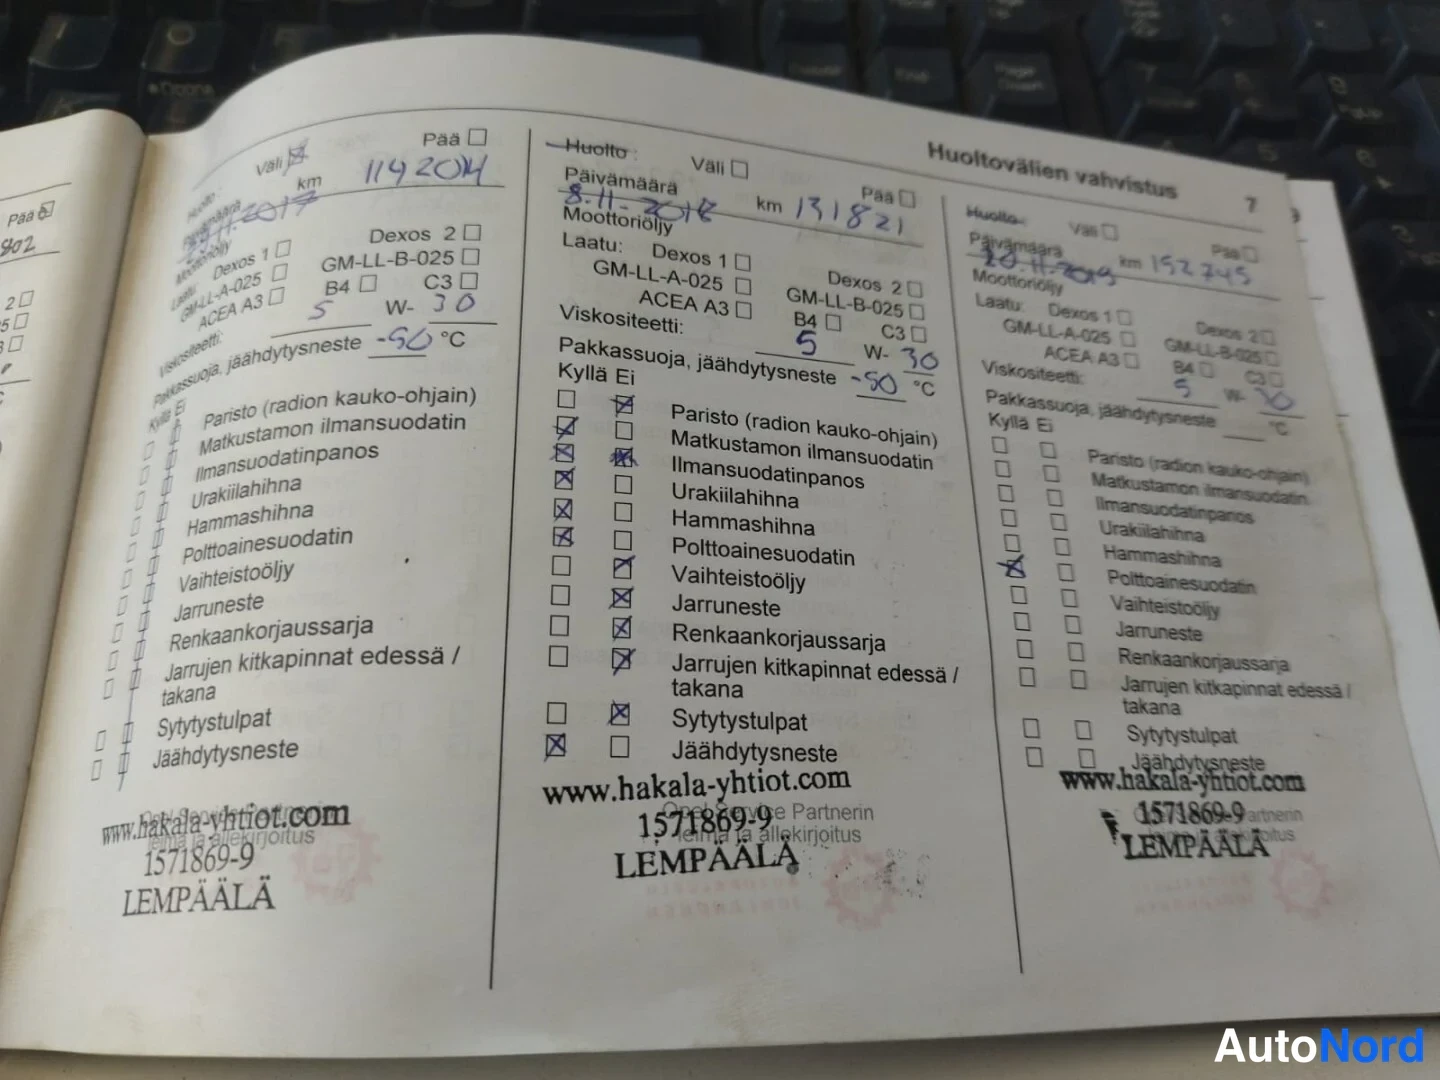 Huoltovälien vahvistus 7
Pää
802
Väli Pää
Huolto:
Päivämäärä km
Moottoriöljy
Laatu: Dexos 1 Dexos 2
GM-LL-A-025 GM-LL-B-025
ACEA A3 B4 C3
Viskositeetti: 5 W- 30
Pakkassuoja, jäähdytysneste -50 °C
Kyllä Ei
Paristo (radion kauko-ohjain)
Matkustamon ilmansuodatin
Ilmansuodatinpanos
Urakiilahihna
Hammashihna
Polttoainesuodatin
Vaihteistoöljy
Jarruneste
Renkaankorjaussarja
Jarrujen kitkapinnat edessä /
takana
Sytytystulpat
Jäähdytysneste
www.hakala-yhtiot.com
1571869-9
LEMPÄÄLÄ
Huolto: Väli Pää
Päivämäärä km 131821
8.11-
Moottoriöljy
Laatu: Dexos 1 Dexos 2
GM-LL-A-025 GM-LL-B-025
ACEA A3 B4 C3
Viskositeetti: 5 W- 30
Pakkassuoja, jäähdytysneste -50 °C
Kyllä Ei
Paristo (radion kauko-ohjain)
Matkustamon ilmansuodatin
Ilmansuodatinpanos
Urakiilahihna
Hammashihna
Polttoainesuodatin
Vaihteistoöljy
Jarruneste
Renkaankorjaussarja
Jarrujen kitkapinnat edessä /
takana
Sytytystulpat
Jäähdytysneste
www.hakala-yhtiot.com
Opel Service Partnerin
1571869-9
leima ja allekirjoitus
LEMPÄÄLÄ
Huolto: Väli Pää
Päivämäärä km 152745
20.11-2019
Moottoriöljy
Laatu: Dexos 1 Dexos 2
GM-LL-A-025 GM-LL-B-025
ACEA A3 B4 C3
Viskositeetti: 5 W- 30
Pakkassuoja, jäähdytysneste °C
Kyllä Ei
Paristo (radion kauko-ohjain)
Matkustamon ilmansuodatin
Ilmansuodatinpanos
Urakiilahihna
Hammashihna
Polttoainesuodatin
Vaihteistoöljy
Jarruneste
Renkaankorjaussarja
Jarrujen kitkapinnat edessä /
takana
Sytytystulpat
Jäähdytysneste
www.hakala-yhtiot.com
1571869-9
LEMPÄÄLÄ
AutoNord